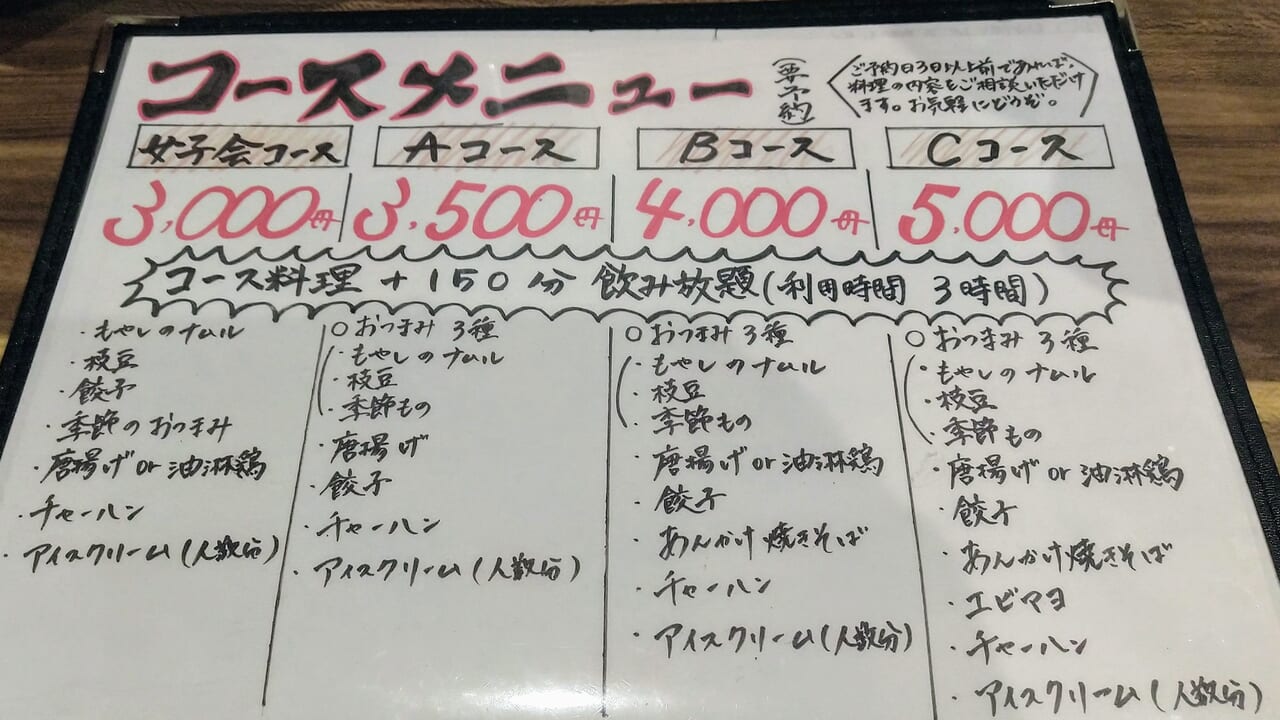 コースメニュー
(要予約)
ご予約日3日以上前であれば、
料理の内容をご相談いただけ
ます。お気軽にどうぞ。
女子会コース
3,000円
Aコース
3,500円
Bコース
4,000円
Cコース
5,000円
コース料理 + 150分 飲み放題(利用時間 3時間)
・もやしのナムル
・枝豆
・餃子
・季節のおつまみ
・唐揚げ or 油淋鶏
・チャーハン
・アイスクリーム(人数分)
○おつまみ 3種
・もやしのナムル
・枝豆
・季節もの
・唐揚げ
・餃子
・チャーハン
・アイスクリーム(人数分)
○おつまみ 3種
・もやしのナムル
・枝豆
・季節もの
・唐揚げ or 油淋鶏
・餃子
・あんかけ焼きそば
・チャーハン
・アイスクリーム(人数分)
○おつまみ 3種
・もやしのナムル
・枝豆
・季節もの
・唐揚げ or 油淋鶏
・餃子
・あんかけ焼きそば
・エビマヨ
・チャーハン
・アイスクリーム(人数分)